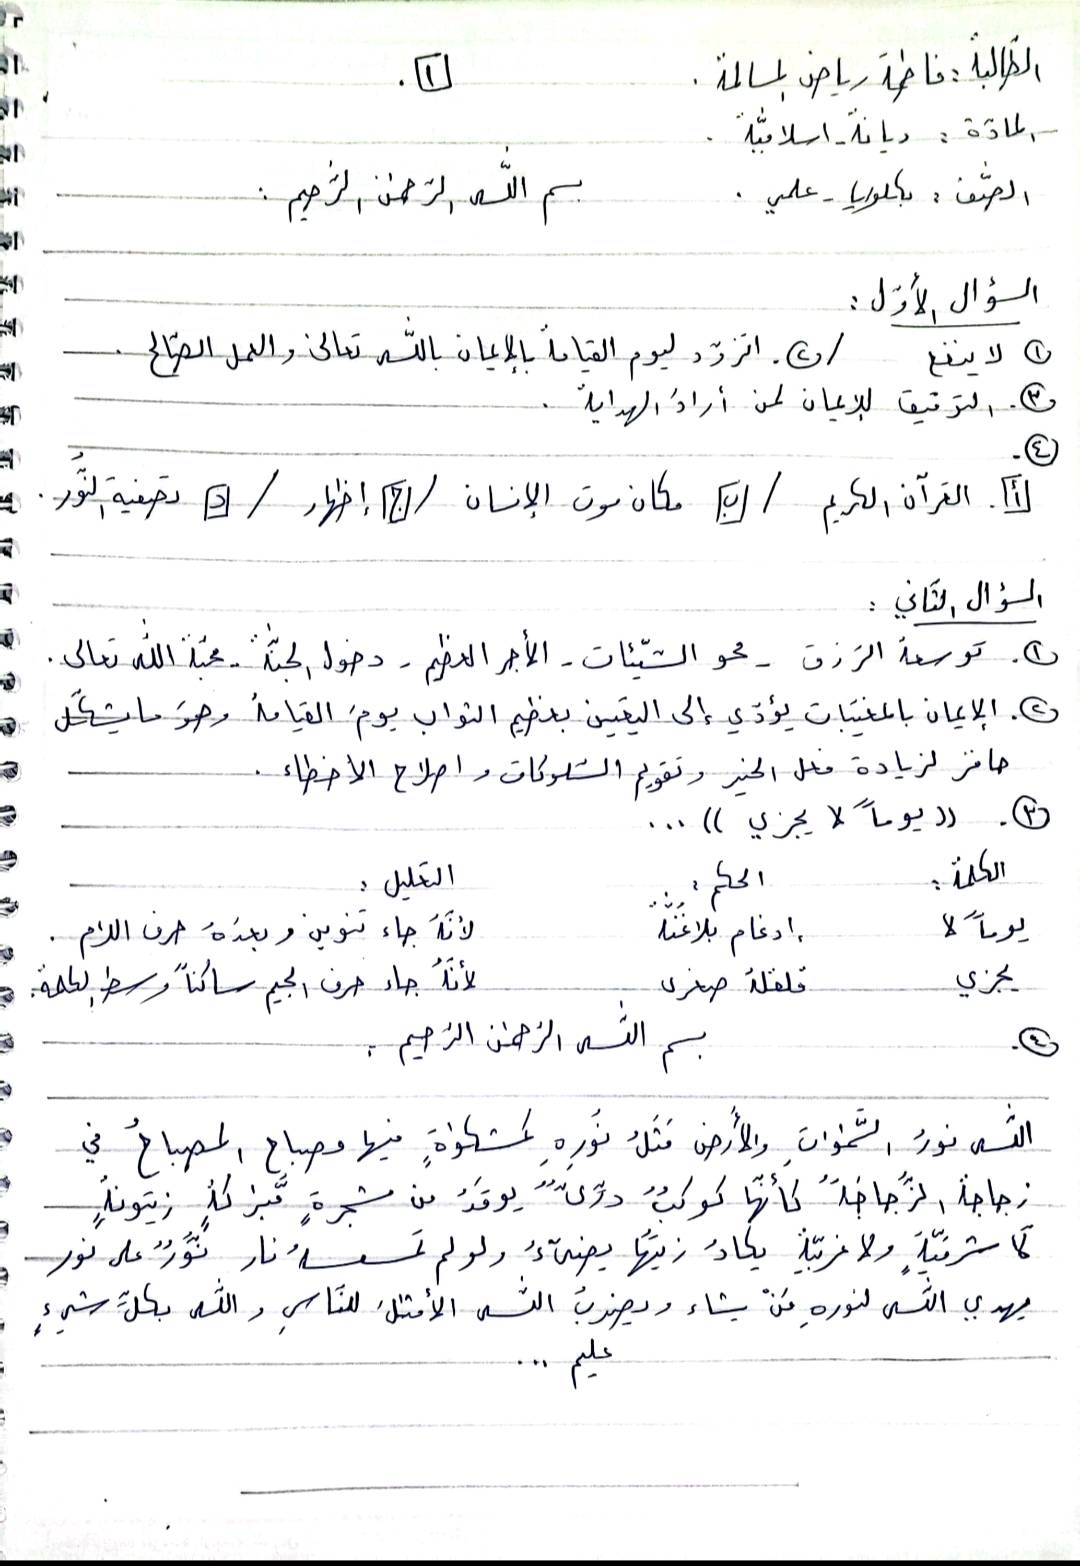 الطّالبة : فاطمة رياض المسالمة . ١ .
المادّة : ديانة - اسلاميّة .
الصّف : بكلوريا - علمي . بسم اللّه الرّحمن الرّحيم :
السؤال الأوّل :
١ لا ينفع / ٢. التزوّد ليوم القيامة بالإيمان باللّه تعالى والعمل الصّالح .
٣. التوفيق للإيمان لمن أراد الهداية .
٤.
أ. القرآن الكريم / ب مكان موت الإنسان / ج إظهار / د تصفية النّور .
السؤال الثّاني :
١. توسعة الرّزق - محو السّيّئات - الأجر العظيم - دخول الجنّة - محبّة اللّه تعالى .
٢. الإيمان بالمغيّبات يؤدّي إلى اليقين بعظيم الثواب يومَ القيامة وهوَ ما يشكّل
حافز لزيادة فعل الخير وتقويم السّلوكات واصلاح الاخطاء .
٣. (( يوماً لا يجزي )) ...
الكلمة : الحكم : التعليل :
يوماً لا إدغام بلا غنّة لأنّهُ جاء تنوين وبعدهُ حرف اللام .
يجزي قلقلة صغرى لأنّهُ جاء حرف الجيم ساكناً وسط الكلمة .
٤. بسم اللّه الرّحمن الرّحيم :
اللّه نورُ السَّمٰوٰاتِ والأَرضِ مَثَلُ نُورِهِ كَمشكوٰةٍ فيها مصباح المصباحُ في
زجاجة الزُّجاجَةُ كأنّها كوكبٌ درّىٌّ يوقدُ من شجرةٍ مّبٰركةٍ زيتونةٍ
لّا شرقيّةٍ ولا غربيّةٍ يكادُ زيتُها يضىٓءُ ولو لم تمسسهُ نار نُّورٌ على نور
يهدي اللّه لنورهِ مَنْ يشاء ويضربُ اللّه الأمثٰلَ للنّاسِ واللّه بكلِّ شيءٍ
عليم ...